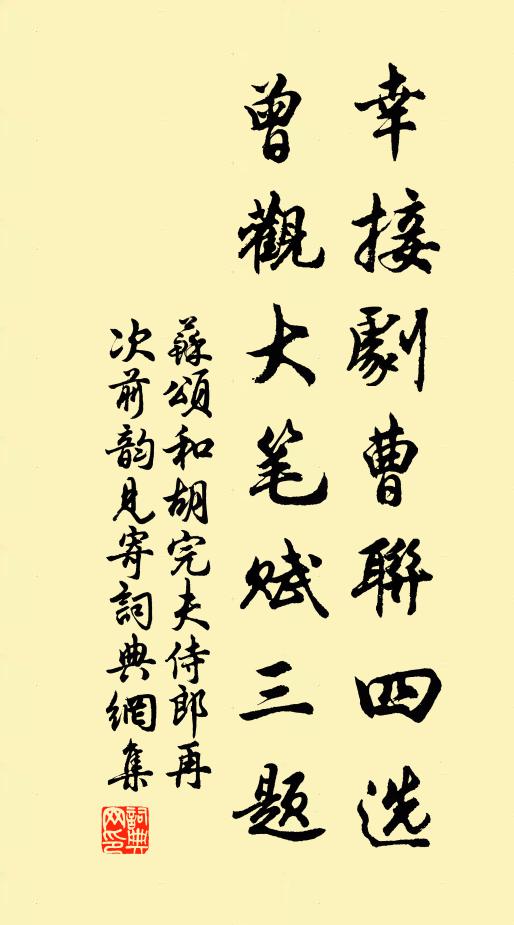 幸接劇曹聯四选
曾觀大笔赋三题
蘇頌和胡完夫侍郎再
次前韵見寄詞典網集
詞典
网印